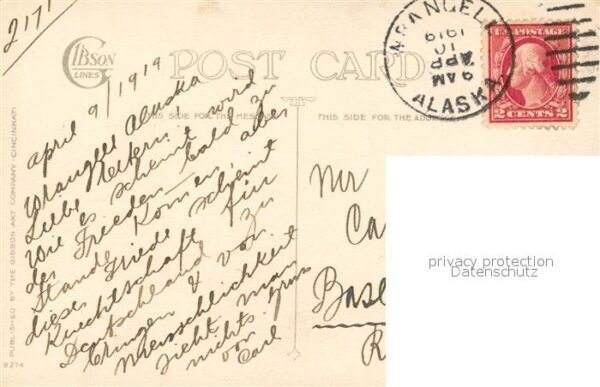 2171
GIBSON
LINES
POST CARD
THIS SIDE FOR THE MESSAGE
THIS SIDE FOR THE ADDRESS
WRANGELL
APR
10
9 AM
1919
ALASKA
U.S. POSTAGE
2 CENTS 2
april 9/1919
Wrangell Alaska
Liebe Eltern, wird
wie es scheint bald zu
der Frieden, aber
Stande kommen,
dieser Friede scheint
Knechtschaft für
Deutschland zu
&
von
Menschlichkeit
sieht man
nichts. Gruss
von
Carl
Mr
Ca
Basel
privacy protection
Datenschutz
PUBLISHED BY THE GIBSON ART COMPANY, CINCINNATI
9274